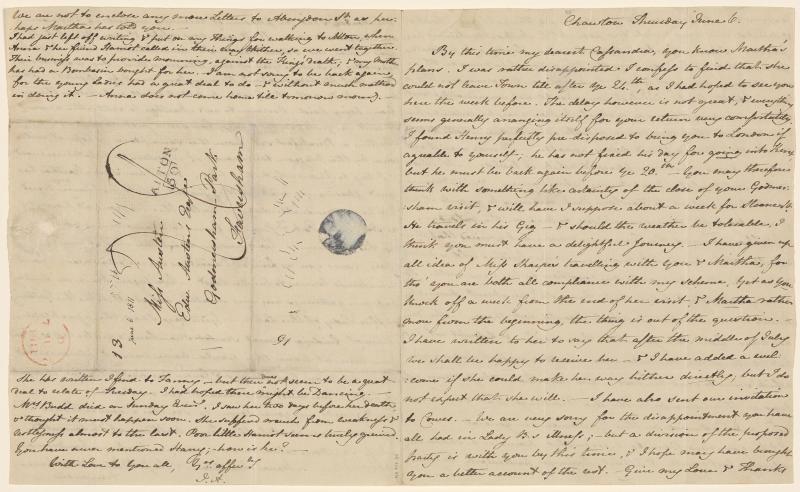 We are not to enclose any more Letters to Abingdon St. as per-
haps Martha has told you. —
I had just left off writing & put on my Things for walking to Alton, when
Anna & her friend Harriot called in their way thither, so we went together.
Their business was to provide mourning, against the King's death; & my Mother
has had a Bombasin bought for her. — I am not sorry to be back again,
for the young Ladies had a great deal to do — & without much method
in doing it. — Anna does not come home till tomorrow morng. —
ALTON
Miss Austen
Edwd Austen's Esqre
Godmersham Park
Faversham
June 6 1811
She has written I find to Fanny — but there does not seem to be a great
deal to relate of Tuesday. I had hoped there might be Dancing. —
Mrs Budd died on Sunday Eveng. I saw her two days before her death,
& thought it must happen soon. She suffered much from weakness &
restlessness almost to the last. Poor little Harriot seems truly grieved.
You have never mentioned Harry; — how is he? —
With Love to You all, Yrs affec:ly
J. A.
Chawton Thursday June 6.
By this time my dearest Cassandra, you know Martha's
plans. I was rather disappointed I confess to find that she
could not leave Town till after ye 24th, as I had hoped to see you
here the week before. — The delay however is not great, & everything
seems generally arranging itself for your return very comfortably.
I found Henry perfectly pre-disposed to bring you to London if
agreable to yourself; he has not fixed his day for going into Kent,
but he must be back again before ye 20th. — You may therefore
think with something like certainty of the close of your Godmer-
sham visit, & will have I suppose about a week for Sloane St.
He travels in his Gig — & should the weather be tolerable, I
think you must have a delightful Journey. — I have given up
all idea of Miss Sharpe's travelling with You & Martha, for
tho' you are both all compliance with my scheme, yet as you
knock off a week from the end of her visit, & Martha rather
more from the beginning, the thing is out of the question. —
I have written to her to say that after the middle of July
we shall be happy to receive her — & I have added a wel-
come if she could make her way hither directly; but I do
not expect that she will. — I have also sent our invitation
to Cowes. — We are very sorry for the disappointment you have
all had in Lady B.'s illness; — but a division of the proposed
party is with you by this time, & I hope may have brought
you a better account of the rest. — Give my Love & Thanks